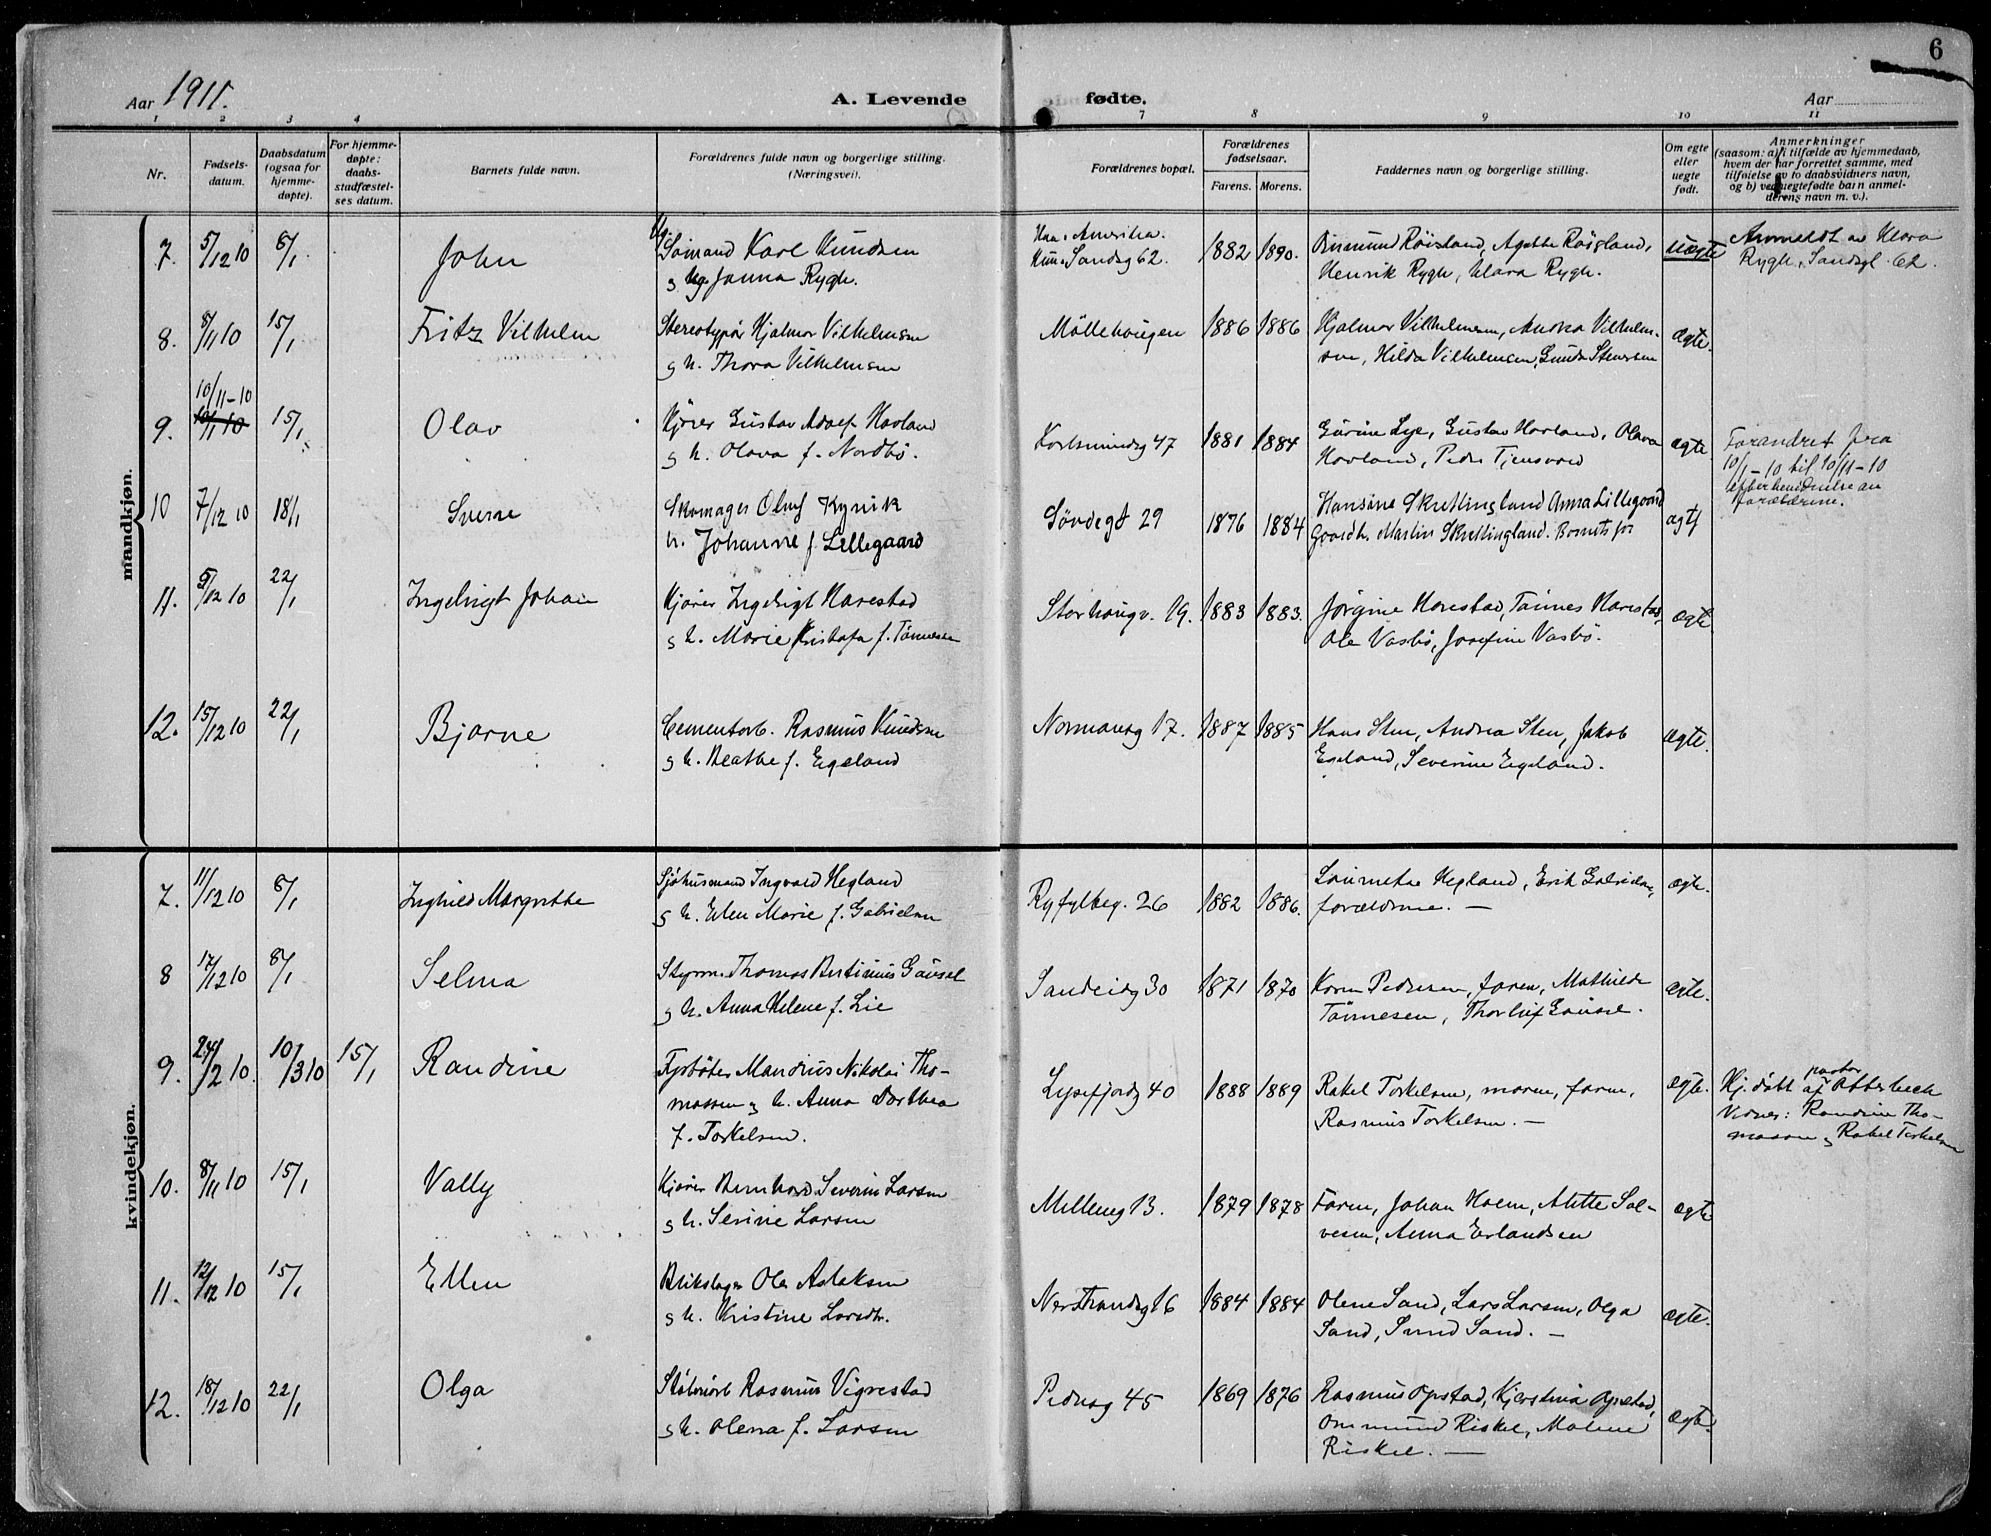 6
Aar 1911.
A. Levende fødte.
Aar
1 2 3 4 7 8 9 10 11
Nr.
Fødsels-
datum.
Daabsdatum
(ogsaa for
hjemme-
døpte).
For hjemme-
døpte:
daabs-
stadfæstel-
ses datum.
Barnets fulde navn.
Forældrenes fulde navn og borgerlige stilling.
(Næringsvei).
Forældrenes bopæl.
Forældrenes
fødselsaar.
Farens. Morens.
Faddernes navn og borgerlige stilling.
Om egte
eller
uegte
født.
Anmerkninger
(saasom: a) i tilfælde av hjemmedaab,
hvem der har forrettet samme, med
tilføielse av to daabsvidners navn,
og b) ved uegtefødte barn anmel-
derens navn m. v.).
mandkjøn.
7. 5/12 10 8/1. John
Sømand Karl Knudsen
Janna Rygh.
Amerika.
Sandsg 62.
1882 1890.
Røisland, Agathe Røisland,
Henrik Rygh, Klara Rygh.
uægte
Anmeldt av Klara
Rygh, Sandsgt. 62.
8. 8/11 10 15/1 Fritz Vilhelm
Stereotypør Hjalmar Vilhelmsen
og h. Thora Vilhelmsen
Möllehougen 1886 1886
Hjalmar Vilhelmsen, Vilhelm-
sen, Hilda Vilhelmsen, Gunda Stensen
ægte.
10/11-10
9. 10/1 10 15/1 Olav
Kjører Gustav Adolf Havland
og h. Olava f. Nordbø.
47 1881 1884
Gurine Lye, Gustav Havland, Olava
Havland, Peder Tjensvold
ægte
Forandret fra
10/1-10 til 10/11-10
forældrene.
10 7/12 10 18/1 Sverre
Skomager Oluf Kynik
h. Johanne f. Lillegaard
Søvdegt 29 1876 1884
Hansine Skrettingland Anna Lillegaard
Martin Skrettingland. Barnets far
ægte
11. 5/12 10 22/1 Ingebrigt Johan
Kjører Ingebrigt Harestad
og h. Marie Kristofa f. Tønnesen
Storhougv. 19. 1883 1883.
Jørgine Harestad, Tønnes Harestad,
Ole Vasbø, Josefine Vasbø.
ægte
12. 15/12 10 22/1 Bjarne
Cementarb. Rasmus Knudsen
og h. Beathe f. Egeland
Normansg 17. 1887 1885
Hans Sten, Andrea Sten, Jakob
Egeland, Severine Egeland.
ægte.
kvindekjøn.
7. 11/12 10 8/1 Inghild Margrethe
Sjøhusmand Ingvald Hegland
og h. Elen Marie f. Gabrielsen
Ryfylkeg. 26 1882 1886.
Hegland, Erik Gabrielsen,
forældrene. —
ægte.
8 17/12 10 8/1 Selma
Styrm. Thomas Bertinius Gausel
og h. Anna Helene f. Lie
Sandeidg 30 1871 1870
Karen Pedersen, faren, Mathilde
Tønnesen, Thorleif Gausel.
ægte.
9. 24/2 10. 10/3 10 15/1 Randine
Fyrbøter Mandius Nikolai Tho-
massen og h. Anna Dorthea
f. Torkelsen.
Lysefjordg 40 1888 1889
Rakel Torkelsen, moren, faren,
Rasmus Torkelsen. —
ægte.
Hj. døbt af pastor Otterbech
Vidner: Randine Tho-
massen og Rakel Torkelsen
10. 8/11 10 15/1 Vally
Kjører Bernhard Severin Larsen
og h. Serine Larsen
Mølleveg 13. 1879 1878
Faren, Johan Holm, Alette Sol-
vesen, Anna Erlandsen
ægte
11. 12/12 10 15/1 Ellen
Blikslager Ole Aslaksen
og h. Kristine Larsdtr.
Nerstrandsg 16 1884 1884
Olene Sand, Lars Larsen, Olga
Sand, Svend Sand. —
ægte.
12. 18/12 10 22/1 Olga
Støberiarb Rasmus Vigrestad
og h. Olena f. Larsen
Pedersg 45 1869 1876
Rasmus Opstad, Kjerstina Opstad,
Ommund Riskel, Malene
Riskel. —
ægte.